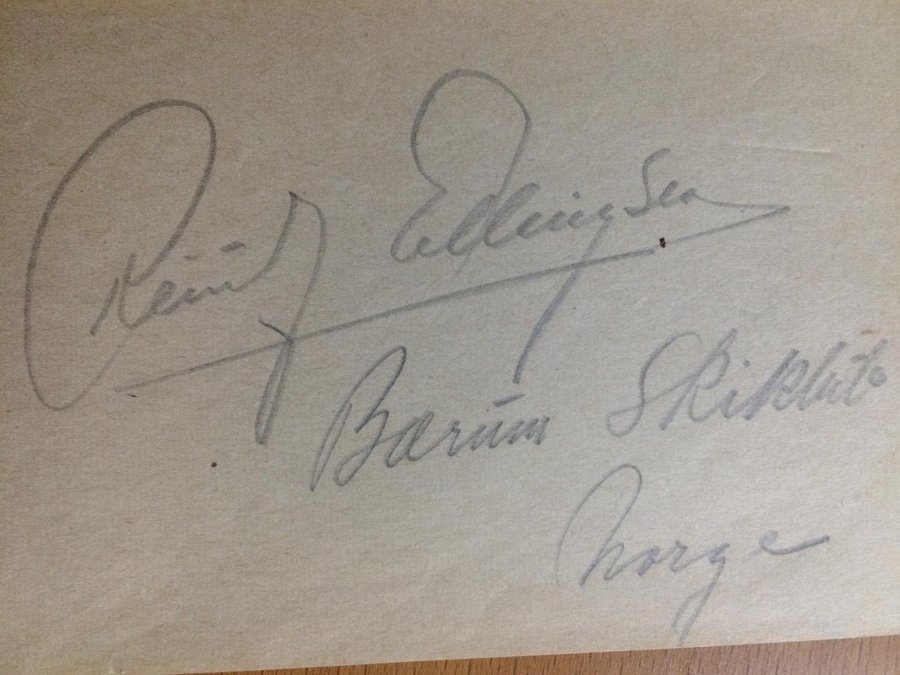 Ellingsen
Bærum Skiklub
Norge